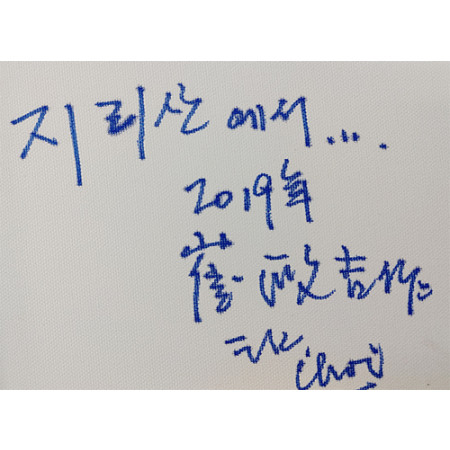 지리산 에서...
2019年
崔 吉作
Choi